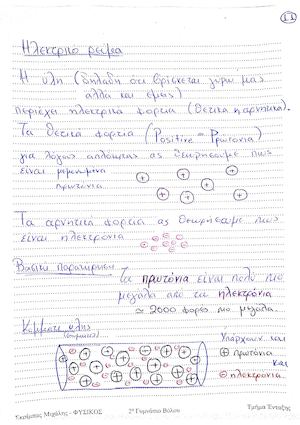 11
Ηλεκτρικό ρεύμα
Η ύλη (δηλαδή ότι βρίσκεται γύρω μας
αλλά και εμείς)
περιέχει ηλεκτρικά φορτία (θετικά ή αρνητικά).
Τα θετικά φορτία (Positive = Πρωτόνια)
για λόγους απλότητας ας θεωρήσουμε πως
είναι μεμονωμένα
πρωτόνια
Τα αρνητικά φορτία ας θεωρήσουμε πως
είναι ηλεκτρόνια
Βασική παρατήρηση
Τα πρωτόνια είναι πολύ πιο
μεγάλα από τα ηλεκτρόνια
≃ 2000 φορές πιο μεγάλα.
Κομμάτι ύλης
Υπάρχουν και
+ πρωτόνια
και
- ηλεκτρόνια
Μιχάλης - ΦΥΣΙΚΟΣ 2º Γυμνάσιο Βόλου Τμήμα Ένταξης